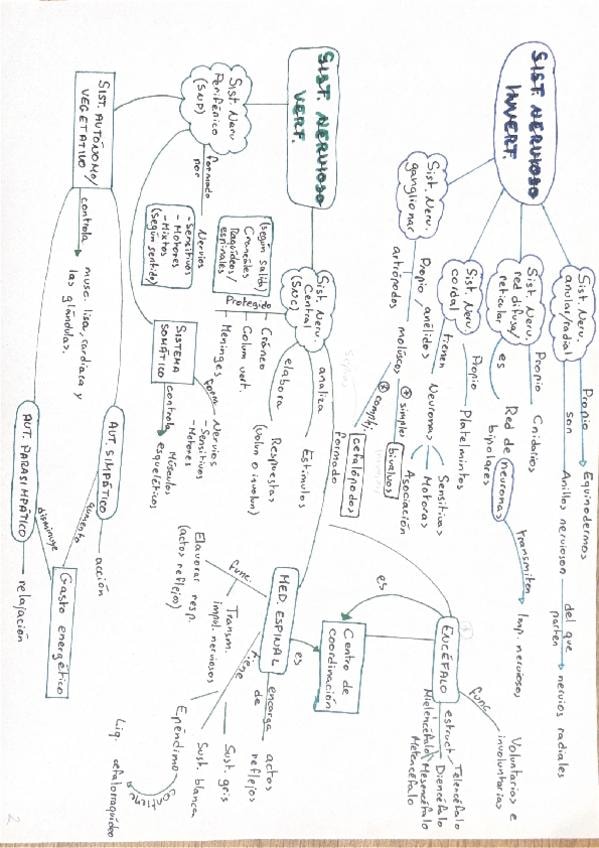 SIST. NERVIOSO
INVERT.
Sist. Neru.
anular/radial
Propio
Equinodermos
son
Anillos nerviosos
del que
parten
nervios radiales
Sist. Neru.
red difusa/
reticular
Propio
Cnidarios
es
Red de neuronas
bipolares
transmiten
Imp. nerviosos
Sist. Neru.
cordal
Propio
Platelmintos
tienen
Neuronas
Sensitivas
Motoras
Asociación
Sist. Neru.
ganglionar
Propio
anélidos
artrópodos
moluscos
⊕ simple
bivalvos
⊕ complej.
cefalópodos
formado
SIST. NERVIOSO
VERT.
Sist. Neru.
Central
(SNC)
analiza
Estímulos
elabora
Respuestas
(volun o involun)
Protegido
Cráneo
Colum vert.
Meninges
ENCÉFALO
func.
Voluntarios e
involuntarias
estruct
Telencéfalo
Diencéfalo
Mesencéfalo
Metencéfalo
Mielencéfalo
es
Centro de
coordinación
es
MED. ESPINAL
encarga
de
actos
reflejos
tiene
Sust. gris
Sust. blanca
Epéndimo
contiene
Liq. cefalorraquídeo
func.
Transm.
impul. nerviosos
Elavorar resp.
(actos reflejos)
Sist. Neru
Periférico
(SNP)
formado
por
Nervios
(según salida)
Craneales
Raquídeos/
espinales
-Sensitivos
-Motores
-Mixtos
(según sentido)
SISTEMA
SOMÁTICO
form.
Nervios
-Sensitivos
-Motores
controla
Músculos
esqueléticos
SIST. AUTÓNOMO/
VEGETATIVO
controla
musc. lisa, cardiaca y
las glándulas.
AUT. SIMPÁTICO
acción
aumento
Gasto energético
disminuye
AUT. PARASIMPÁTICO
relajación
2